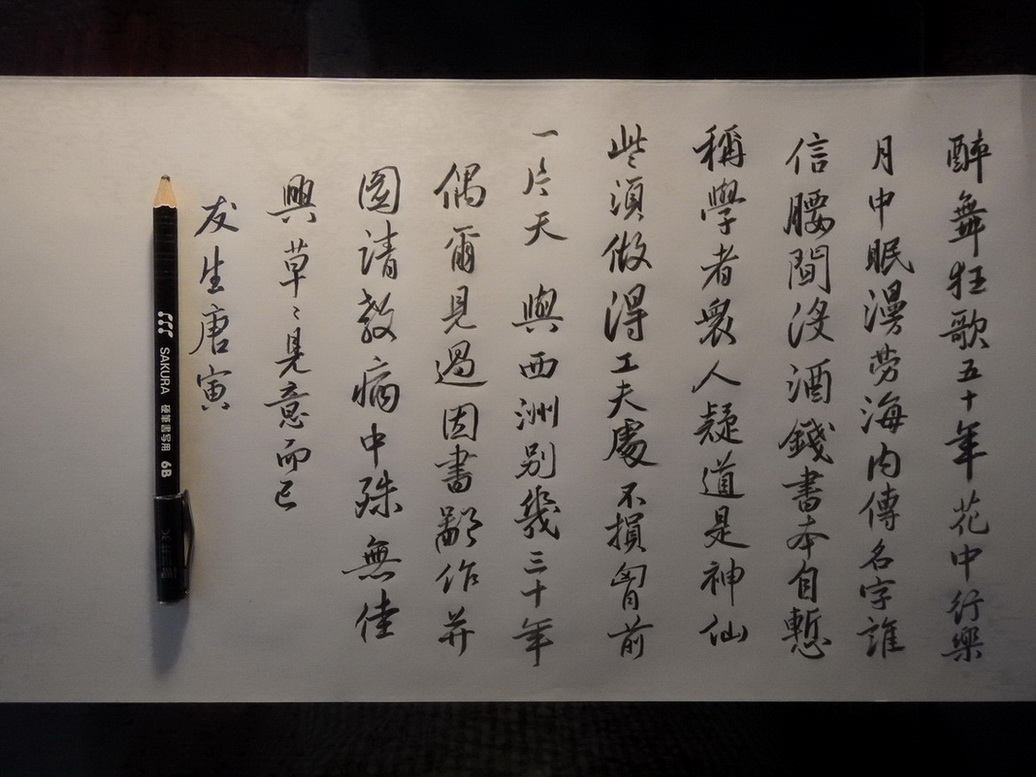 醉舞狂歌五十年花中行樂
月中眠漫劳海内傳名字誰
信腰間没酒錢書本自慙
稱學者衆人疑道是神仙
些須做得工夫處不損胷前
一片天 與西洲别幾三十年
偶爾見過因書鄙作并
圖請教病中殊無佳
興草〻見意而已
友生唐寅
SAKURA 硬筆書写用 6B